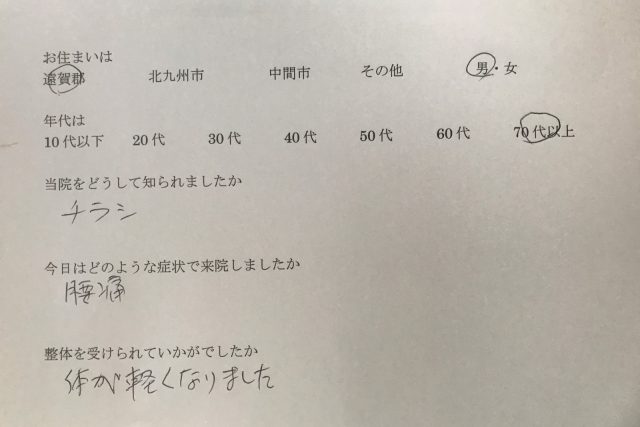 お住まいは
遠賀郡 北九州市 中間市 その他 男・女
年代は
10代以下 20代 30代 40代 50代 60代 70代以上
当院をどうして知られましたか
チラシ
今日はどのような症状で来院しましたか
腰痛
整体を受けられていかがでしたか
体が軽くなりました